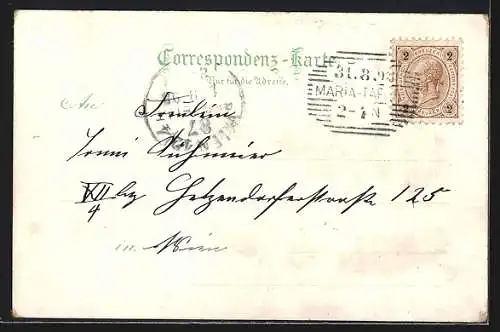 Correspondenz-Karte
Nur für die Adresse.
2 2
31.8.98
MARIA-TAF
2-4N
Fräulein
Irmi Kuhmeier
XII/4 bez Hetzendorferstraße 125
in Wien